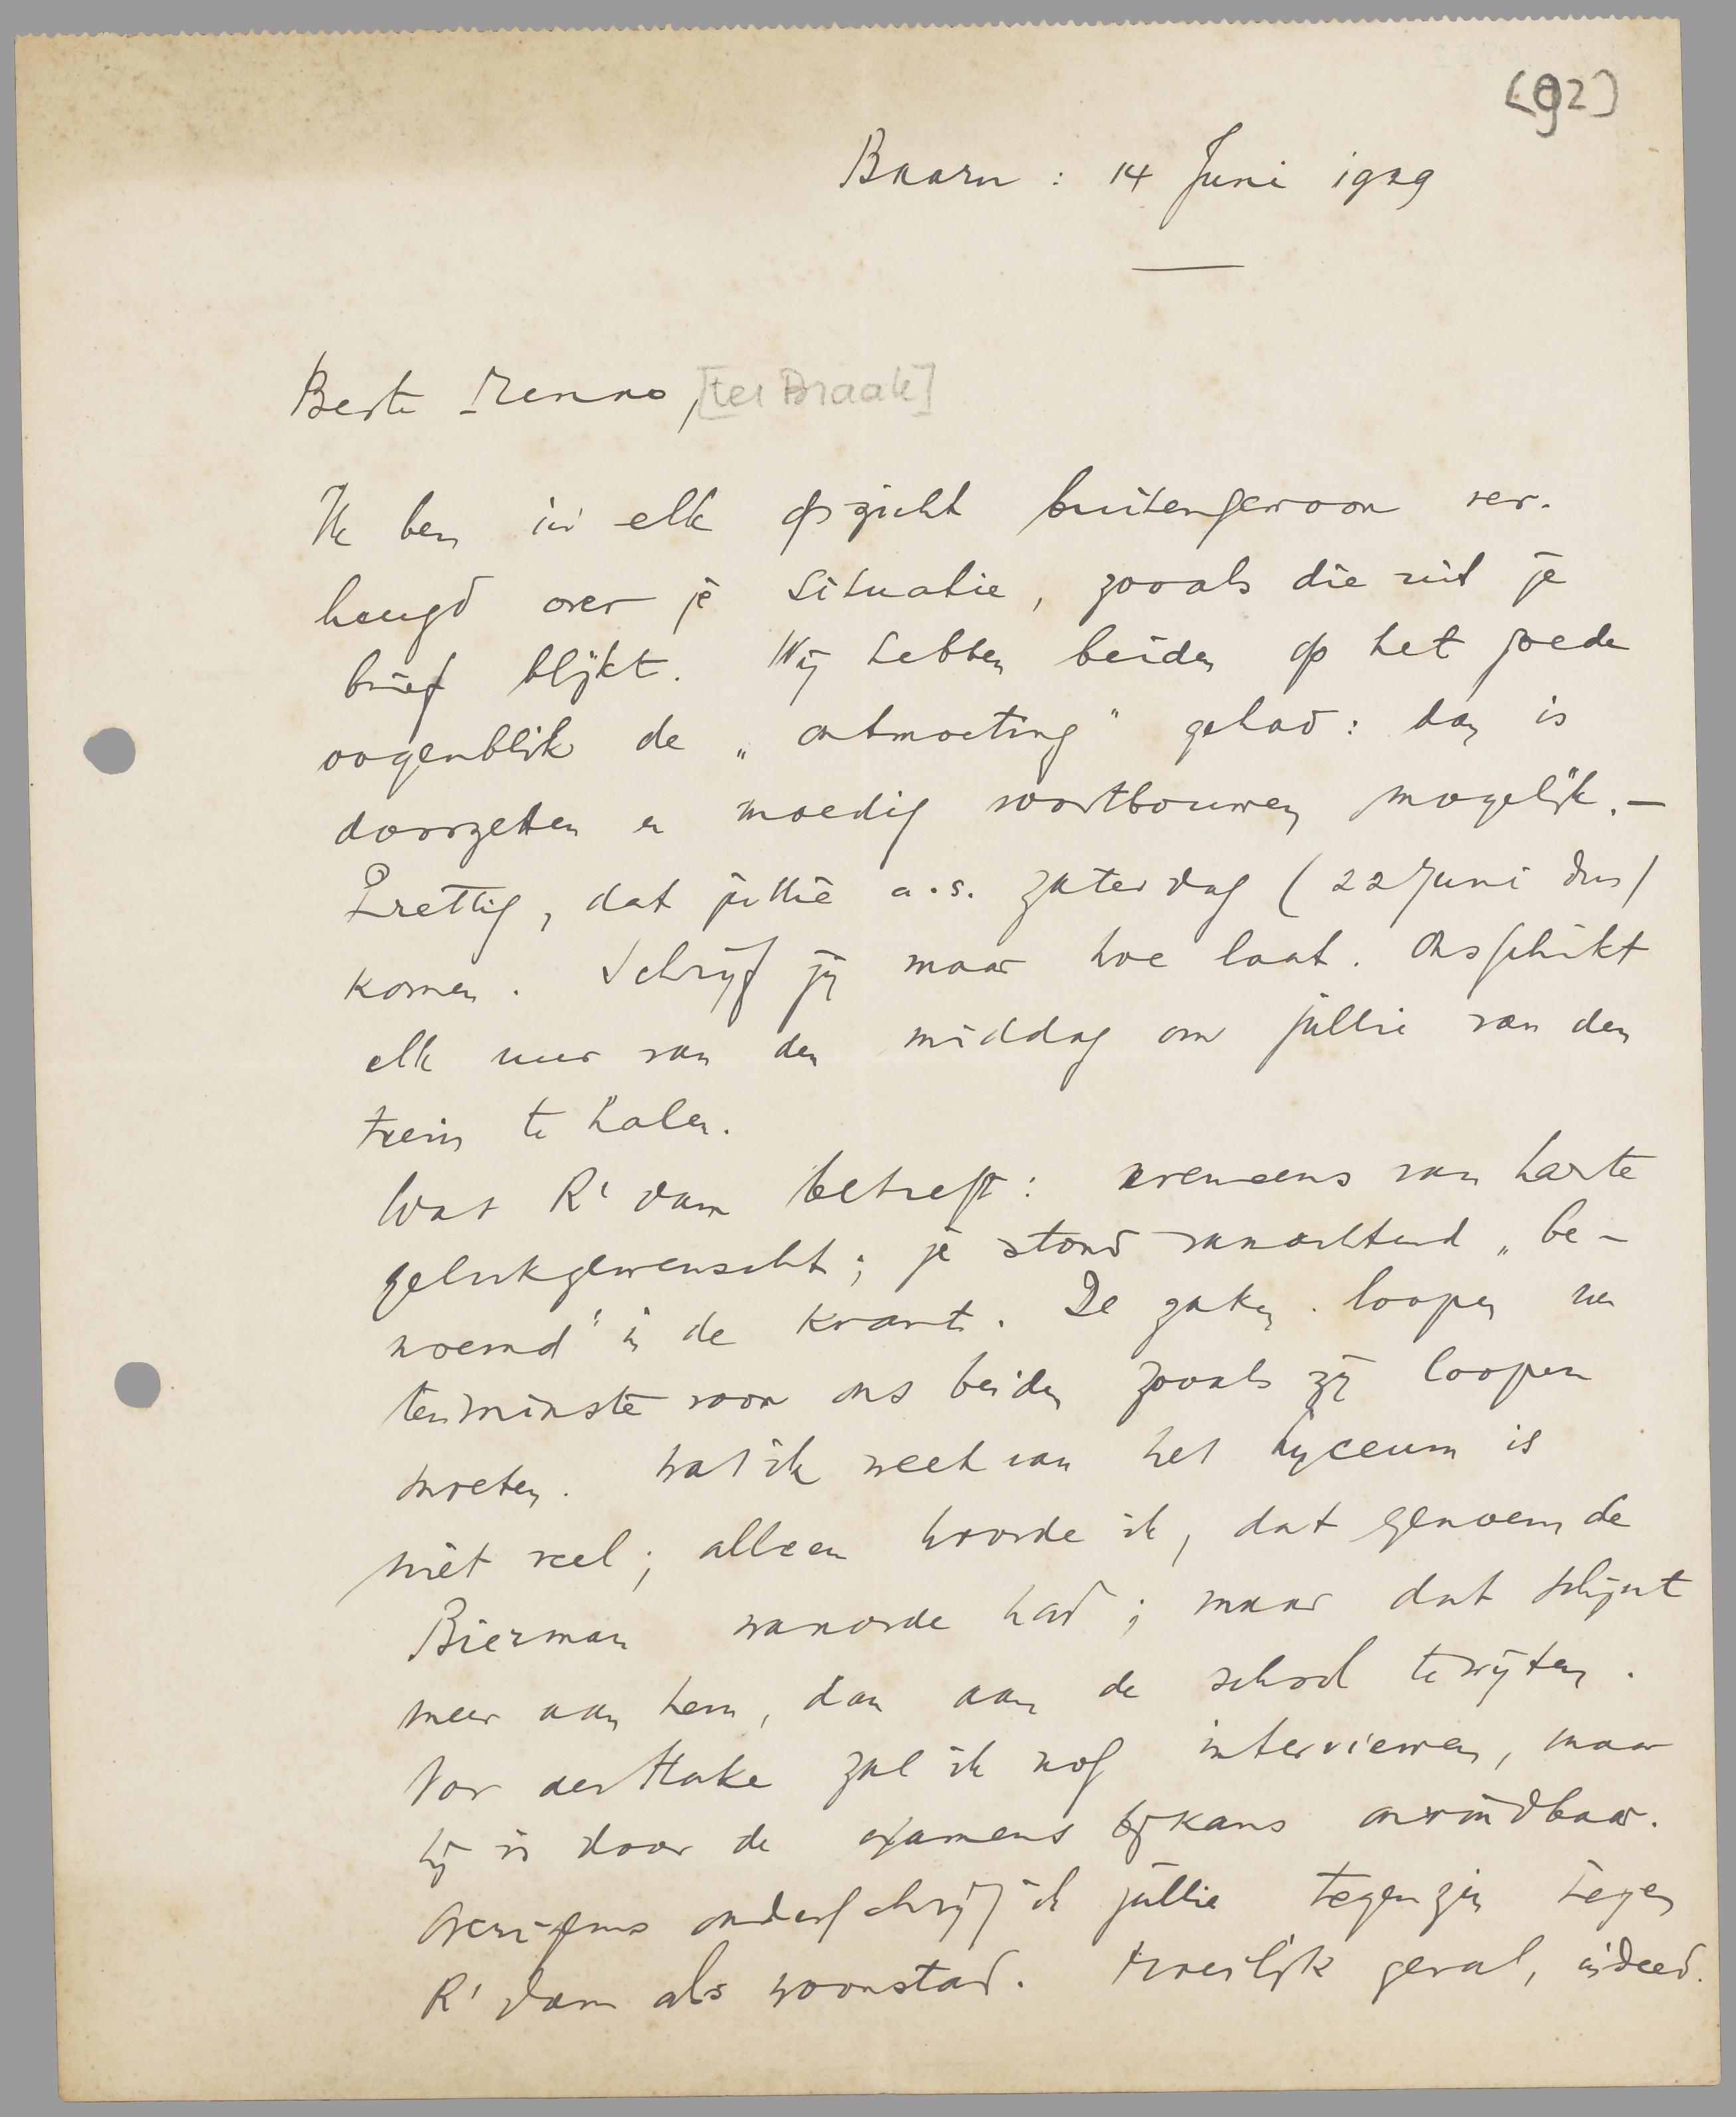 (92)
Baarn : 14 Juni 1929
Beste Menno, [ter Braak]
Ik ben in elk opzicht buitengewoon ver-
heugd over je situatie, zooals die uit je
brief blijkt. Wij hebben beiden op het goede
oogenblik de „ontmoeting" gehad: dan is
doorzetten en moedig voortbouwen mogelijk. –
Prettig, dat jullie a.s. Zaterdag (22 Juni dus)
komen. Schrijf jij maar hoe laat. Ons schikt
elk uur van den middag om jullie van den
trein te halen.
Wat R'dam betreft: eveneens van harte
gelukgewenscht; je stond vanochtend „be-
noemd" in de krant. De zaken loopen nu
tenminste voor ons beiden zooals zij loopen
moeten. Wat ik weet van het Lyceum is
niet veel; alleen hoorde ik, dat genoemde
Bierman wanorde had; maar dat schijnt
meer aan hem, dan aan de school te wijten.
Von der Hake zal ik nog interviewen, maar
hij is door de examens bijkans onvindbaar.
Overigens onderschrijf ik jullie tegenzin tegen
R'dam als woonstad. Moeilijk geval, indeed.